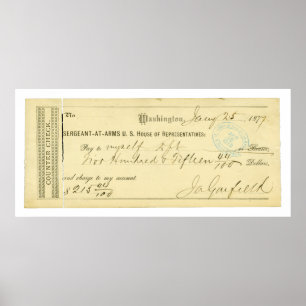 No
Washington, Jany 25 1877
SERGEANT-AT-ARMS U. S. HOUSE OF REPRESENTATIVES:
Pay to myself or Bearer,
Two Hundred & Fifteen 44/100 Dollars,
and charge to my account
$215 44/100
Ja Garfield
COUNTER CHECK.